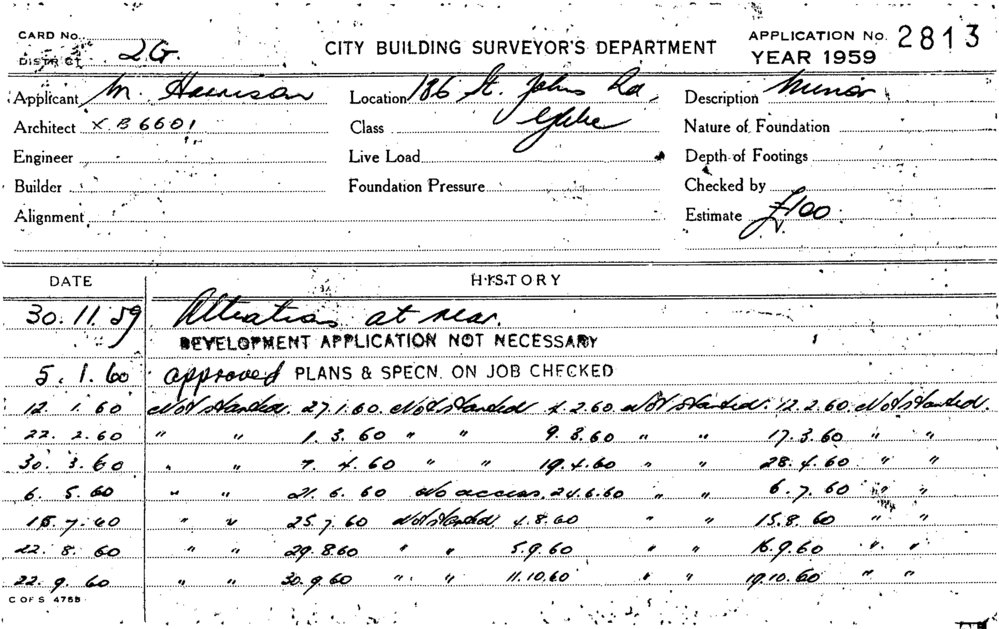 CARD No. CITY BUILDING SURVEYOR'S DEPARTMENT APPLICATION No. 2813
DISTRICT 2G. YEAR 1959
Applicant M. Harrison Location 186 St. Johns Rd, Description Minor
Architect X B 6601 Class Glebe Nature of Foundation
Engineer Live Load Depth of Footings
Builder Foundation Pressure Checked by
Alignment Estimate £100
DATE HISTORY
30. 11. 59 Alterations at rear.
DEVELOPMENT APPLICATION NOT NECESSARY
5. 1. 60 approved PLANS & SPECN. ON JOB CHECKED
12. 1. 60 Not started. 27.1.60. Not started 2.60. Not started. 12.2.60. Not started.
22. 2. 60 " " 1. 3. 60 " " 9. 3. 60 " " 17. 3. 60 " "
30. 3. 60 " " 7. 4. 60 " " 19. 4. 60 " " 28. 4. 60 " "
6. 5. 60 " " 21. 6. 60 No access. 24.6.60 " " 6. 7. 60 " "
15. 7. 60 " " 25. 7. 60 Not started. 4. 8. 60 " " 15. 8. 60 " "
22. 8. 60 " " 29. 8. 60 " " 5. 9. 60 " " 16. 9. 60 " "
22. 9. 60 " " 30. 9. 60 " " 11. 10. 60 " " 19. 10. 60 " "
C OF S 475B